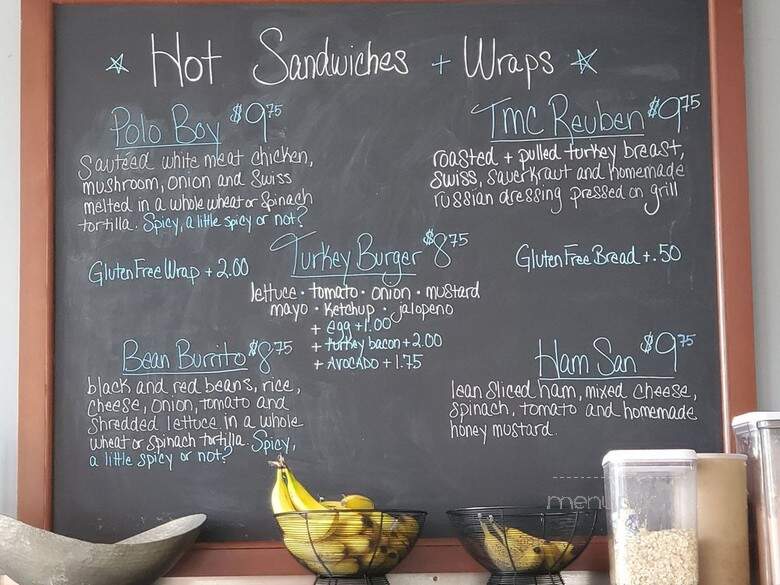 ☆ Hot Sandwiches + Wraps ☆
Polo Boy $9.75
Sautéed white meat chicken,
mushroom, onion and Swiss
melted in a whole wheat or Spinach
tortilla. Spicy, a little spicy or not?
Gluten Free Wrap + 2.00
TMC Reuben $9.75
roasted + pulled turkey breast,
Swiss, Sauerkraut and homemade
russian dressing pressed on grill
Gluten Free Bread +.50
Turkey Burger $8.75
lettuce · tomato · onion · mustard
mayo · Ketchup · jalopeno
+ egg +1.00
+ turkey bacon + 2.00
+ AVOCADO + 1.75
Bean Burrito $8.75
black and red beans, rice,
cheese, onion, tomato and
Shredded lettuce in a whole
wheat or Spinach tortilla. Spicy,
a little spicy or not?
Ham San $9.75
lean sliced ham, mixed cheese,
spinach, tomato and homemade
honey mustard.